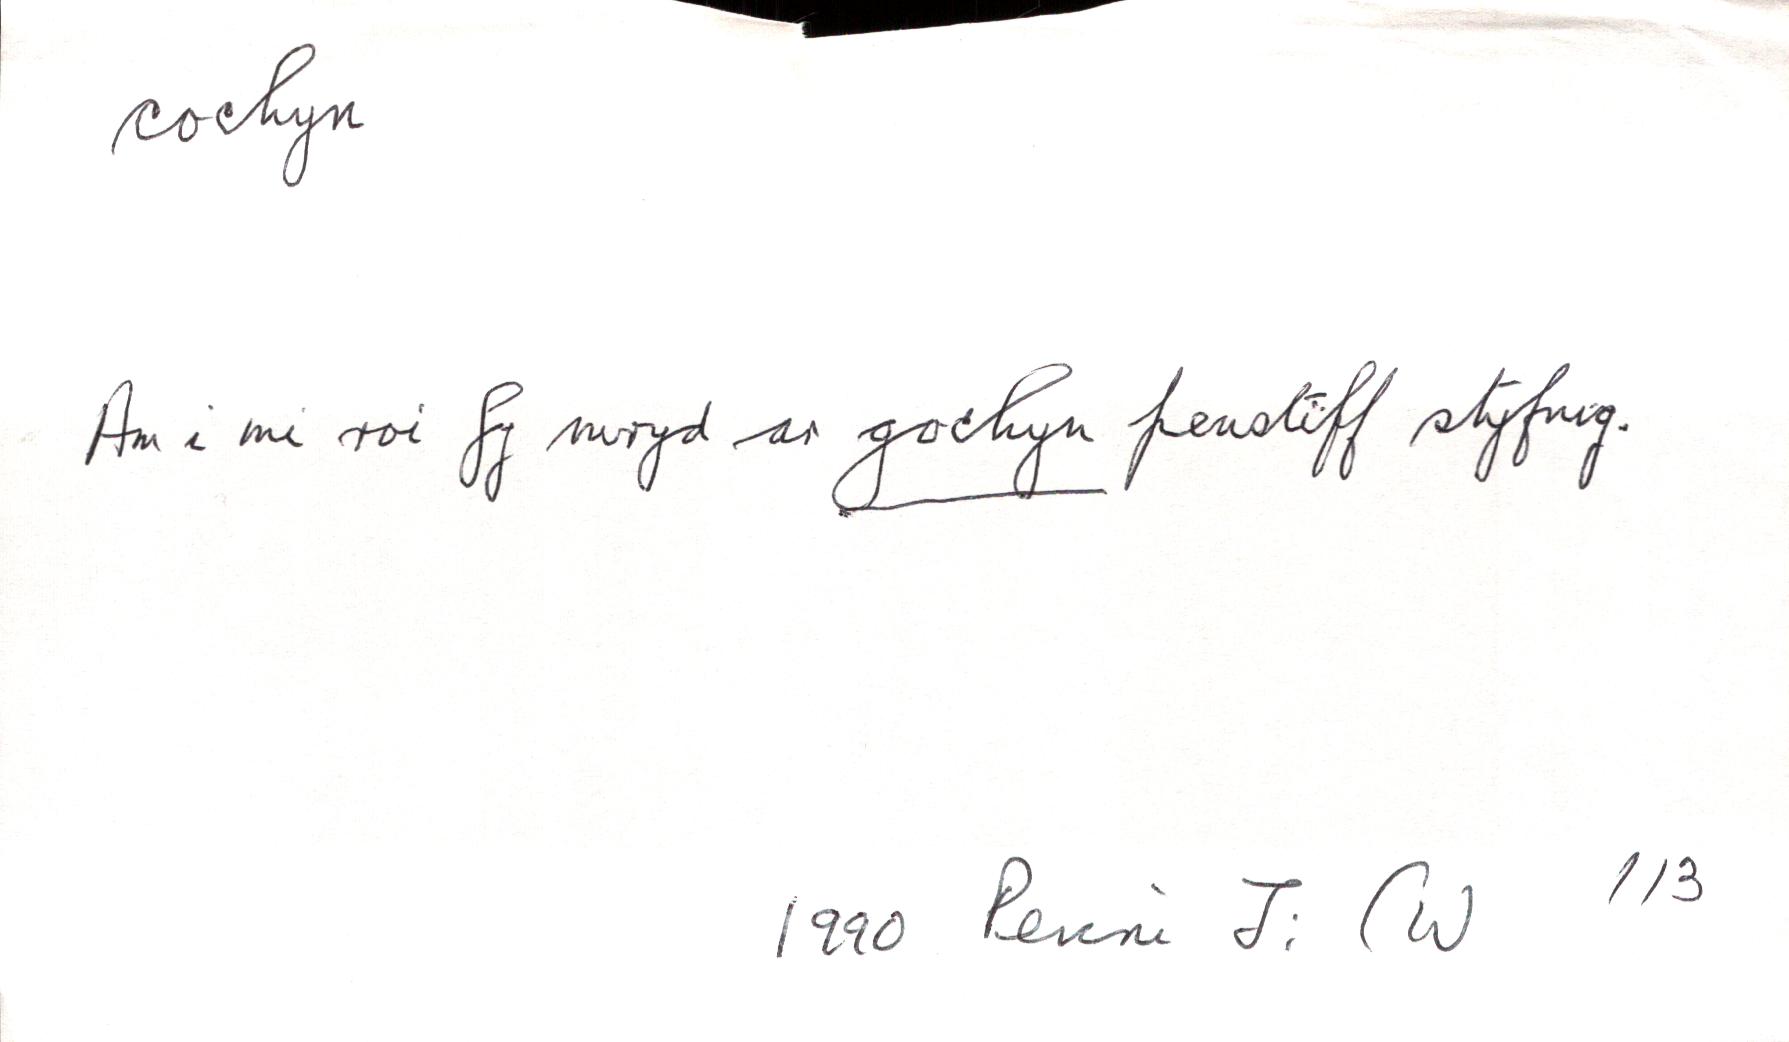 cochyn
Am i mi roi fy mryd ar gochyn penstiff styfnig.
113
1990 Penni J: CW